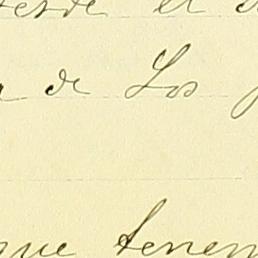 desde el
de Los
que tenem